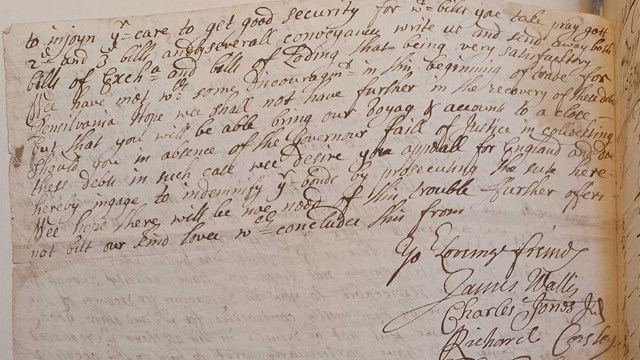 to injoyn yr care to get good security for wt bills you take pray gett
2d and 3 bills and by severall conveyances write us and send away both
bills of Exch a and bills of Loding that being very satisfactory
Wee have met wth some discouragmt in this beginning of trade for
Pensilvania hope wee shall not have further in the recovery of these debts
but that you will be able bring our Voyag & account to a close
should you in absence of the Governour faill of Justice in collecting
these debts in such case wee desire you appeall for England and doe
hereby ingage to indemnify yr by prosecuting the sute here
Wee hope there will be noe need of this trouble further offers
not bilt our kind love wth concludes this from
Yo Loveinge freinds
James Wallis
Charles Jones Jud
Richard